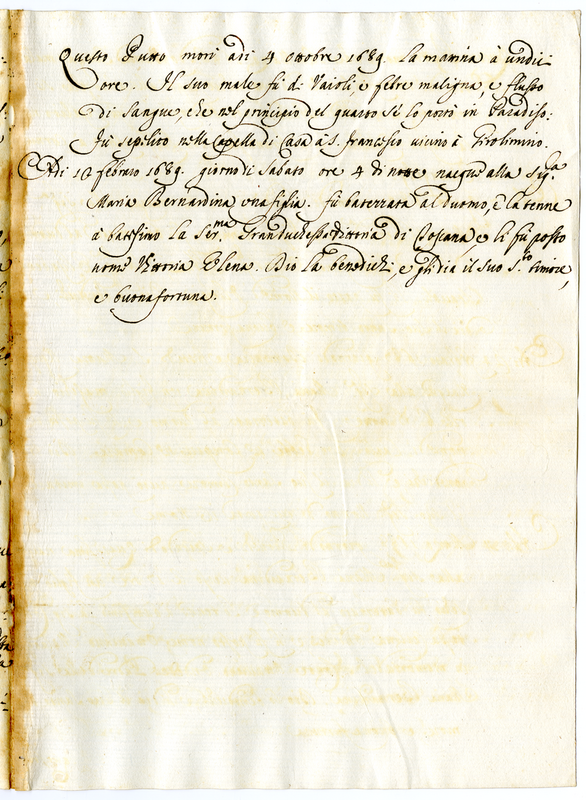 Questo Putto morì adì 4 ottobre 1689. la matina à undici
ore. Il suo male fù di Vaioli, e febre maligna, e flusso
di Sangue, che nel principio del quarto Sè lo portò in Paradiso:
fù sepelito nella Capella di Casa à S. Francesco vicino à
Adì 12 febraro 1689. giorno di Sabato ore 4 di notte nacque alla Sig.ra
Maria Bernardina una figlia. fù batezzata al duomo, è la tenne
à batesimo la Ser.ma Granduchessa Vittoria di Toscana e li fù posto
nome Vittoria Elena. Dio la benedichi, e gli dia il suo S.to timore,
e buona fortuna.